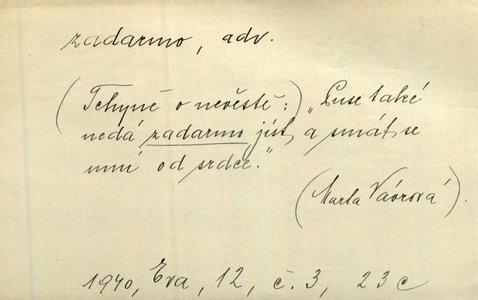 zadarmo, adv.
(Tchyně o nevěstě:) „Puse také
nedá zadarmo jíst, a smát se
umí od srdce."
(Marta Vávrová).
1940, Eva, 12, č. 3, 23 c